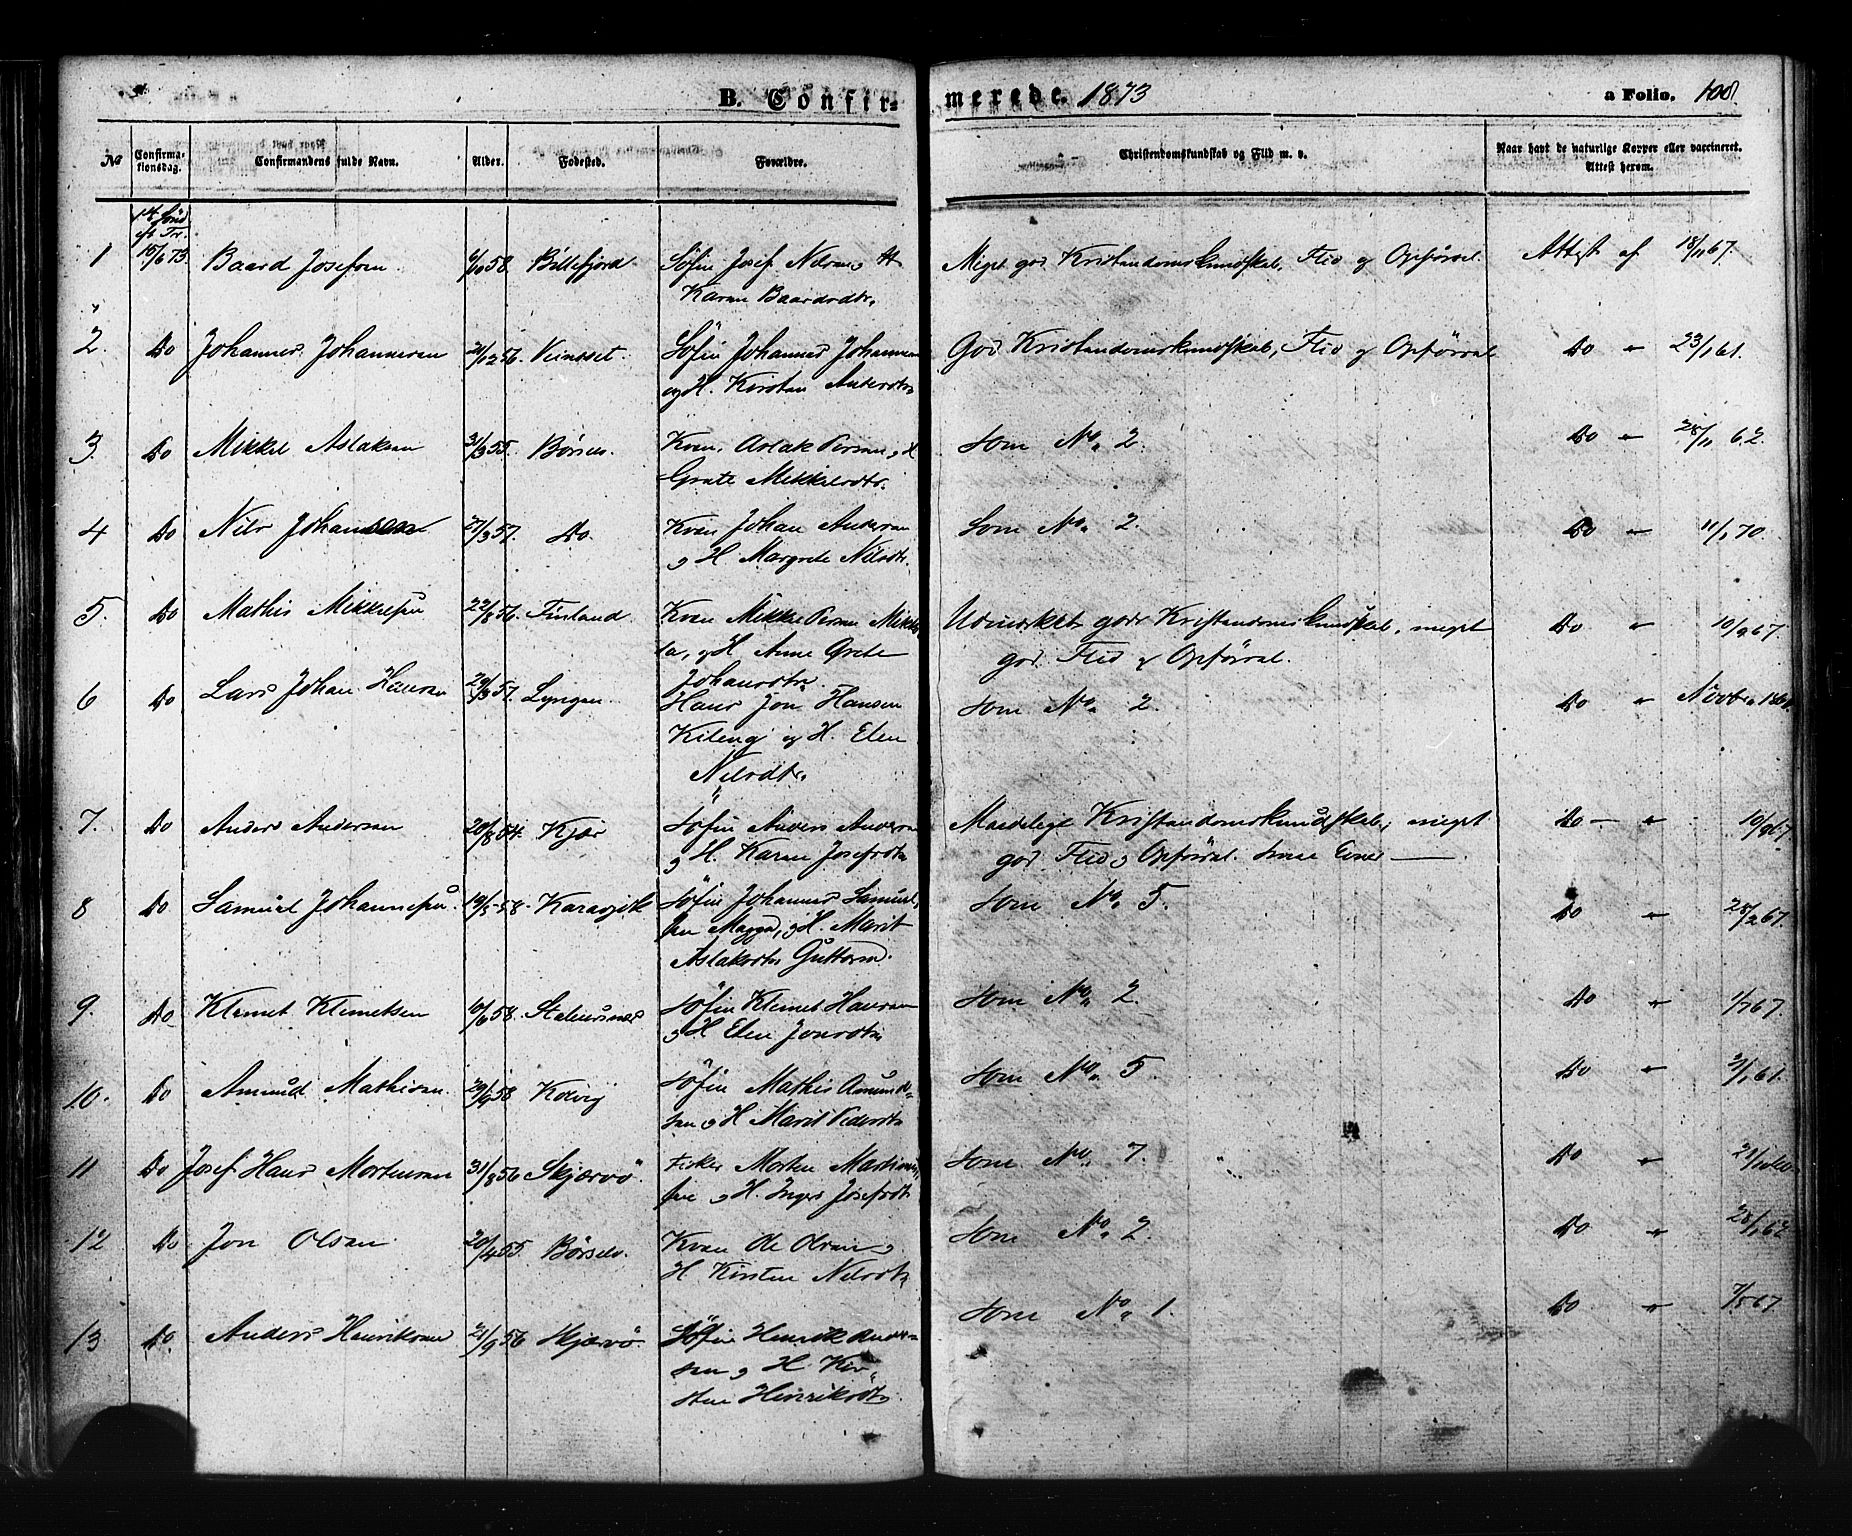 B. Confir-
merede. 1873
a Folio. 108.
No
Confirma-
tionsdag.
Confirmandens fulde Navn.
Alder.
Fødested.
Forældre.
Christendomskundskab og Flid m. v.
Naar havt de naturlige Kopper eller vaccineret.
Attest herom.
1
15/6 73.
Baard Josefsen
6/10 58.
Billefjord.
Søfin Josef Nilsen & H
Karen Baardsdtr.
Meget god Kristendomskundskab, Flid og Opførsel.
Attest af 18/11 67.
2.
Do
Johannes Johannesen
21/12 56.
Veinset.
Søfin Johannes Johannesen
og H. Kirsten Andersdtr
God Kristendomskundskab, Flid og Opførsel
Do " 23/1 61.
3.
Do
Mikkel Aslaksen
31/3 55.
Børselv
Kvæn, Aslak Persen, H
Grete Mikkelsdtr.
Som No. 2.
Do " 28/11 62.
4
Do
Nils Johansen
27/3 57.
Do
Kvæn Johan Andersen
og H Margrete Nilsdtr.
Som No. 2.
Do " 11/1 70.
5.
Do
Mathis Mikkelsen
22/8 56.
Finland.
Kvæn Mikkel Persen Mikke
la, og H Anne Grete
Johansdtr.
Udmærket god Kristendomskundskab, meget
god Flid og Opførsel.
Do " 10/9 67.
6
Do
Lars Johan Hansen
29/3 57.
Lyngen.
Hans Jon Hansen
Kileng og H. Elen
Nilsdtr.
Som No. 2.
Do "
7.
Do
Anders Andersen
20/8 54.
Kjær
Søfin Anders Andersen
og H. Karen Josefsdtr
Maadelige Kristendomskundskab, meget
god Flid og Opførsel.
Do — " 10/9 67.
8
Do
Samuel Johannesen.
19/5 58.
Karasjok
Søfin Johannes Samuel
sen Magga, og H. Marit
Aslaksdtr Guttorm.
Som No. 5.
Do " 25/2 67.
9.
Do
Klemet Klemetsen
10/6 58.
Søfin Klemet Hansen
og H Elen Jonsdtr
Som No. 2.
Do " 1/7 67.
10.
Do
Amund Mathisen
29/9 58.
Kolvig
Søfin Mathis Amund-
sen og H Marit Pedersdtr
Som No. 5.
Do " 2/1 61.
11
Do
Josef Hans Mortensen
31/8 56
Skjærvö
Fisker Morten Martinus
sen og H. Inger Josefsdtr
Som No. 7.
Do "
12
Do
Jon Olsen
20/4 55.
Børselv.
Kvæn Ole Olsen og
H Kirsten Nilsdtr
Som No. 2.
Do " 28/1 62
13
Do.
Anders Henriksen
21/9 56
Skjærvö.
Søfin Henrik Ander-
sen og H Kir-
sten Henriksdtr.
Som No. 1.
Do " 7/5 67